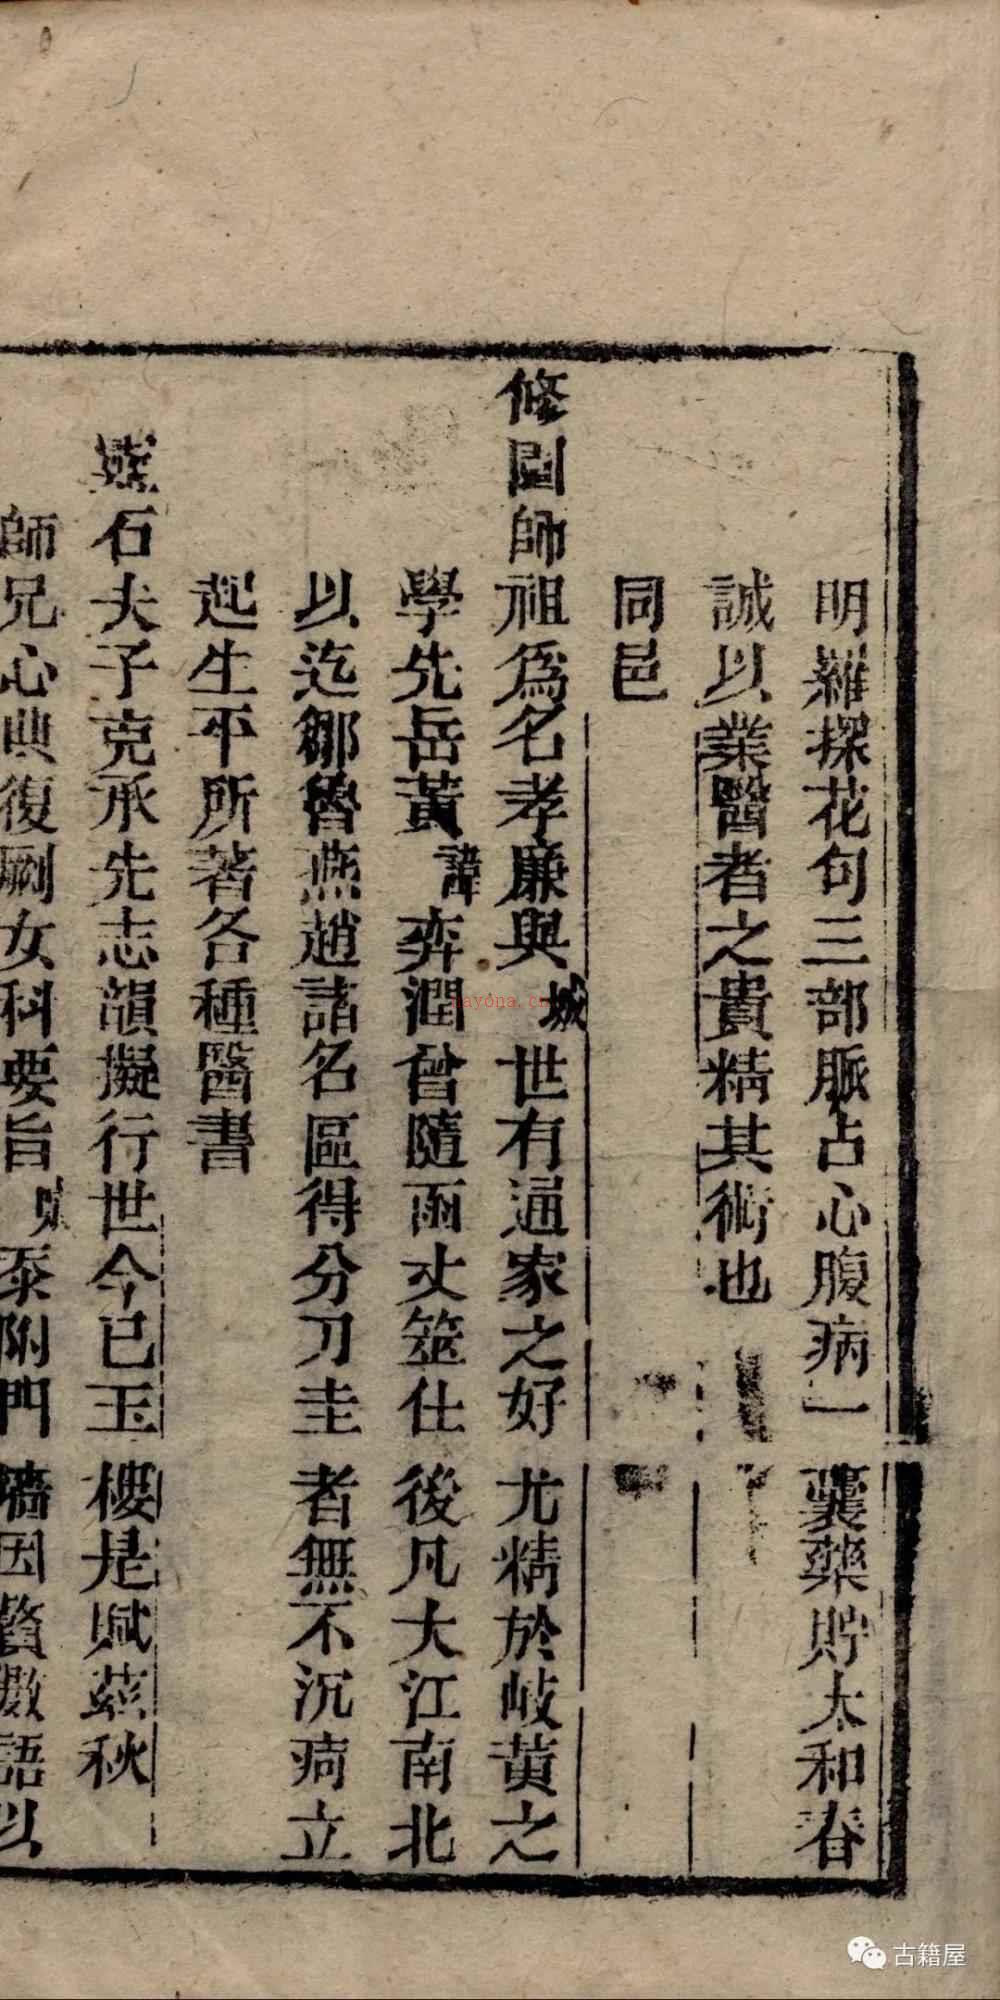 明羅探花句三部脈占心腹病一囊藥貯太和春
誠以業醫者之貴精其術也
同邑
修園師祖爲名孝廉與城世有通家之好尤精於岐黄之
學先岳黃諱弈潤曾隨雨丈筮仕後凡大江南北
以迄鄒魯燕趙諸名區得分刀圭者無不沉疴立
起生平所著各種醫書
石夫子克承先志韻擬行世今已玉樓是賦茲秋
師兄心典復刷女科要旨忝附門墻因贅數語以
nayona.cn
古籍屋